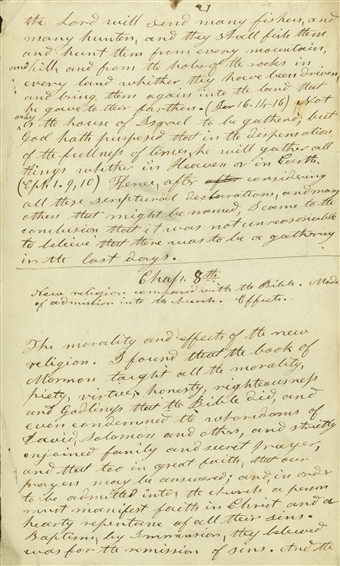 21
the Lord will send many fishers, and
many hunters, and they shall fish them
and hunt them from every mountain,
and hill, and from the holes of the rocks in
every land whither they have been driven,
and bring them again into the land that
he gave to their farthers. (Jer 16. 14-16) Not
only is the house of Israel to be gathered, but
God hath purposed that in the despensation
of the fullness of times, he will gather all
things whither in Heaven or in Earth.
(Eph 1. 9, 10) Hence, after after considering
all these scriptural declarations, and many
others that might be named, I came to the
conclusion that it was not unreasonable
to believe that there was to be a gathering
in the last days.
Chap. 8th
New religion compared with the Bible. Mode
of admission into the church. Effects.
The morality and effects of the new
religion. I found that the book of
Mormon taught all the morality,
piety, virtue, honesty, righteousness
and Godliness that the Bible did, and
even condemned the whoredoms of
David, Solomon and others, and strictly
enjoined family and secret prayer,
and that too in great faith, that our
prayers may be answered; and, in order
to be admitted into the church, a person
must manifest faith in Christ and a
hearty repentance of all their sins.
Baptism, by Immersion, they believed
was for the remission of sins. And the